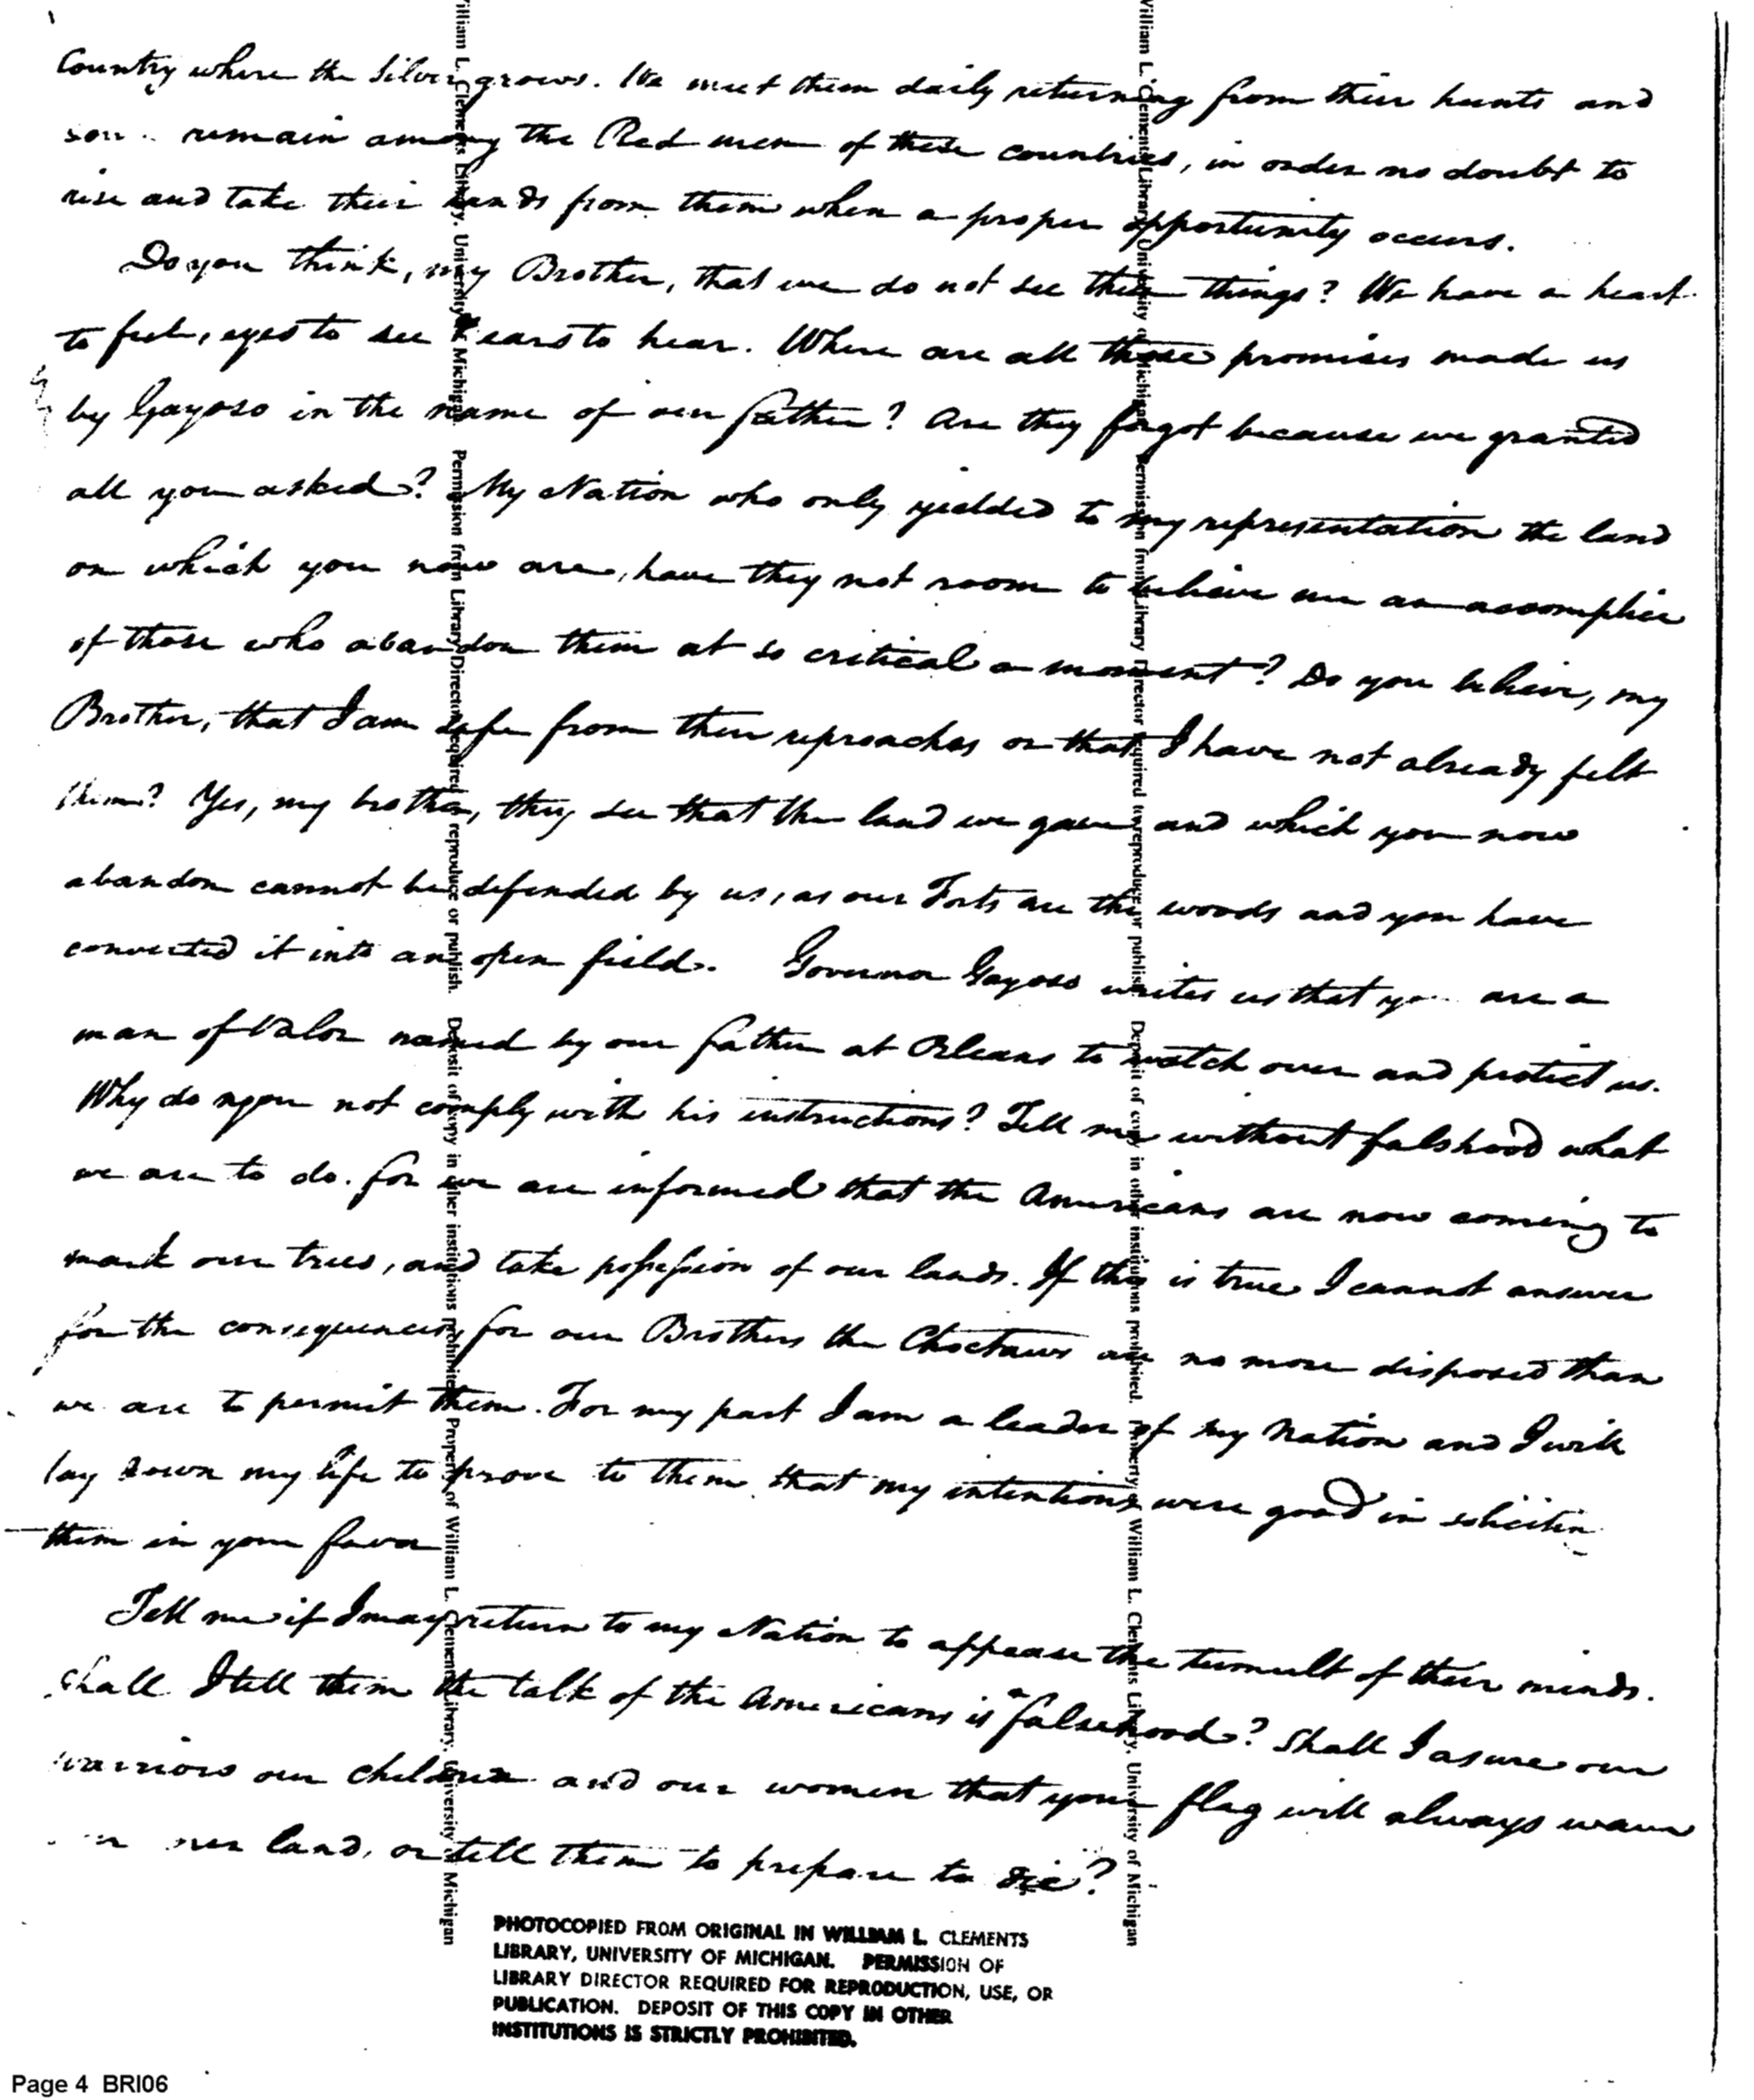 Country where the Silver grows. We meet them daily returning from their hunts and
remain among the Red men of these countries, in order no doubt to
rise and take their lands from them when a proper opportunity occurs.
Do you think, my Brother, that we do not see these things? We have a heart
to feel, eyes to see & ears to hear. Where are all those promises made us
by Gayoso in the name of our father? Are they forgot because we granted
all you asked? My Nation who only yielded to my representation the land
on which you now are, have they not room to believe me an accomplice
of those who abandon them at so critical a moment? Do you believe, my
Brother, that I am safe from their reproaches or that I have not already felt
them? Yes, my brother, they see that the land we gave and which you now
abandon cannot be defended by us, as our Forts are the woods and you have
converted it into an open field. Governor Gayoso writes us that you are a
man of Valor named by our father at Orleans to watch over and protect us.
Why do you not comply with his instructions? Tell me without falshood what
we are to do. for we are informed that the Americans are now coming to
mark our trees, and take possession of our lands. If this is true I cannot answer
for the consequences for our Brothers the Choctaws are no more disposed than
we are to permit them. For my part I am a leader of my Nation and I will
lay down my life to prove to them that my intentions were good in
them in your favor
Tell me if I may return to my Nation to appease the tumult of their minds.
Shall I tell them the talk of the Americans is a falsehood? Shall I asure our
warriors our children and our women that your flag will always wave
land, or tell them to prepare to die?
PHOTOCOPIED FROM ORIGINAL IN WILLIAM L. CLEMENTS
LIBRARY, UNIVERSITY OF MICHIGAN. PERMISSION OF
LIBRARY DIRECTOR REQUIRED FOR REPRODUCTION, USE, OR
PUBLICATION. DEPOSIT OF THIS COPY IN OTHER
INSTITUTIONS IS STRICTLY PROHIBITED.
William L. Clements Library, University of Michigan. Permission from Library Director required to reproduce or publish. Deposit of copy in other institutions prohibited. Property of William L. Clements Library, University of Michigan
William L. Clements Library, University of Michigan. Permission from Library Director required to reproduce or publish. Deposit of copy in other institutions prohibited. Property of William L. Clements Library, University of Michigan
Page 4 BRI06